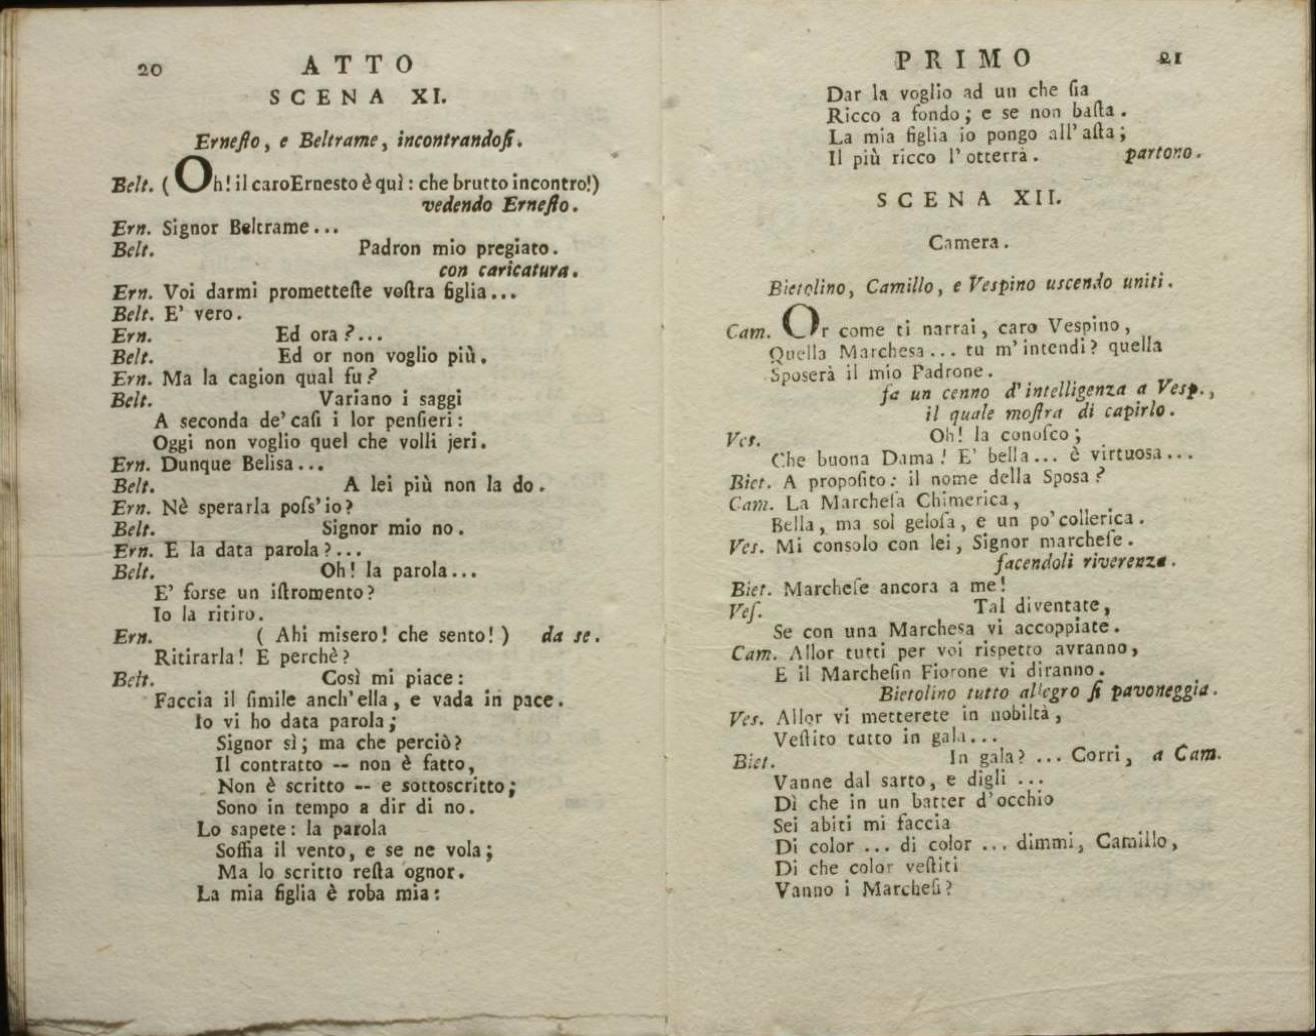 20 ATTO
SCENA XI.
Erneſto, e Beltrame, incontrandoſi.
Belt. (Oh! il caroErnesto è quì: che brutto incontro!)
vedendo Erneſto.
Ern. Signor Beltrame...
Belt. Padron mio pregiato.
con caricatura.
Ern. Voi darmi prometteſte voſtra figlia...
Belt. E' vero.
Ern. Ed ora?...
Belt. Ed or non voglio più.
Ern. Ma la cagion qual fu?
Belt. Variano i saggi
A seconda de' caſi i lor penſieri:
Oggi non voglio quel che volli jeri.
Ern. Dunque Belisa...
Belt. A lei più non la do.
Ern. Nè sperarla poſs'io?
Belt. Signor mio no.
Ern. E la data parola?...
Belt. Oh! la parola...
E' forse un iſtromento?
Io la ritiro.
Ern. ( Ahi misero! che sento! ) da se.
Ritirarla! E perchè?
Belt. Così mi piace:
Faccia il ſimile anch'ella, e vada in pace.
Io vi ho data parola;
Signor sì; ma che perciò?
Il contratto -- non è fatto,
Non è scritto -- e sottoscritto;
Sono in tempo a dir di no.
Lo sapete: la parola
Soffia il vento, e se ne vola;
Ma lo scritto reſta ognor.
La mia figlia è roba mia:
PRIMO 21
Dar la voglio ad un che ſia
Ricco a fondo; e se non baſta.
La mia figlia io pongo all'aſta;
Il più ricco l'otterrà. partono.
SCENA XII.
Camera.
Bietolino, Camillo, e Vespino uscendo uniti.
Cam. Or come ti narrai, caro Vespino,
Quella Marchesa... tu m'intendi? quella
Sposerà il mio Padrone.
fa un cenno d'intelligenza a Vesp.,
il quale moſtra di capirlo.
Ves. Oh! la conoſco;
Che buona Dama! E' bella... è virtuosa...
Biet. A propoſito: il nome della Sposa?
Cam. La Marcheſa Chimerica,
Bella, ma sol geloſa, e un po'collerica.
Ves. Mi consolo con lei, Signor marcheſe.
facendoli riverenza.
Biet. Marcheſe ancora a me!
Veſ. Tal diventate,
Se con una Marchesa vi accoppiate.
Cam. Allor tutti per voi rispetto avranno,
E il Marcheſin Fiorone vi diranno.
Bietolino tutto allegro ſi pavoneggia.
Ves. Allor vi metterete in nobiltà,
Veſtito tutto in gala...
Biet. In gala? ... Corri, a Cam.
Vanne dal sarto, e digli ...
Dì che in un batter d'occhio
Sei abiti mi faccia
Di color ... di color ... dimmi, Camillo,
Di che color veſtiti
Vanno i Marcheſi?